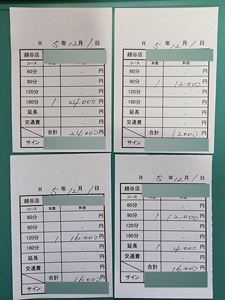 R 5年12月1日
越谷店
コース 本数 料金
60分 円
90分 円
120分 円
180分 1 24,000円
延長 円
交通費 円
合計 24,000円
サイン
R 5年12月1日
越谷店
コース 本数 料金
60分 円
90分 1 12,000円
120分 円
180分 円
延長 円
交通費 円
合計 12,000円
サイン
R 5年12月1日
越谷店
コース 本数 料金
60分 円
90分 円
120分 1 16,000円
180分 円
延長 円
交通費 円
合計 16,000円
サイン
R 5年12月1日
越谷店
コース 本数 料金
60分 円
90分 1 12,000円
120分 円
180分 円
延長 1 4,000円
交通費 円
合計 16,000円
サイン